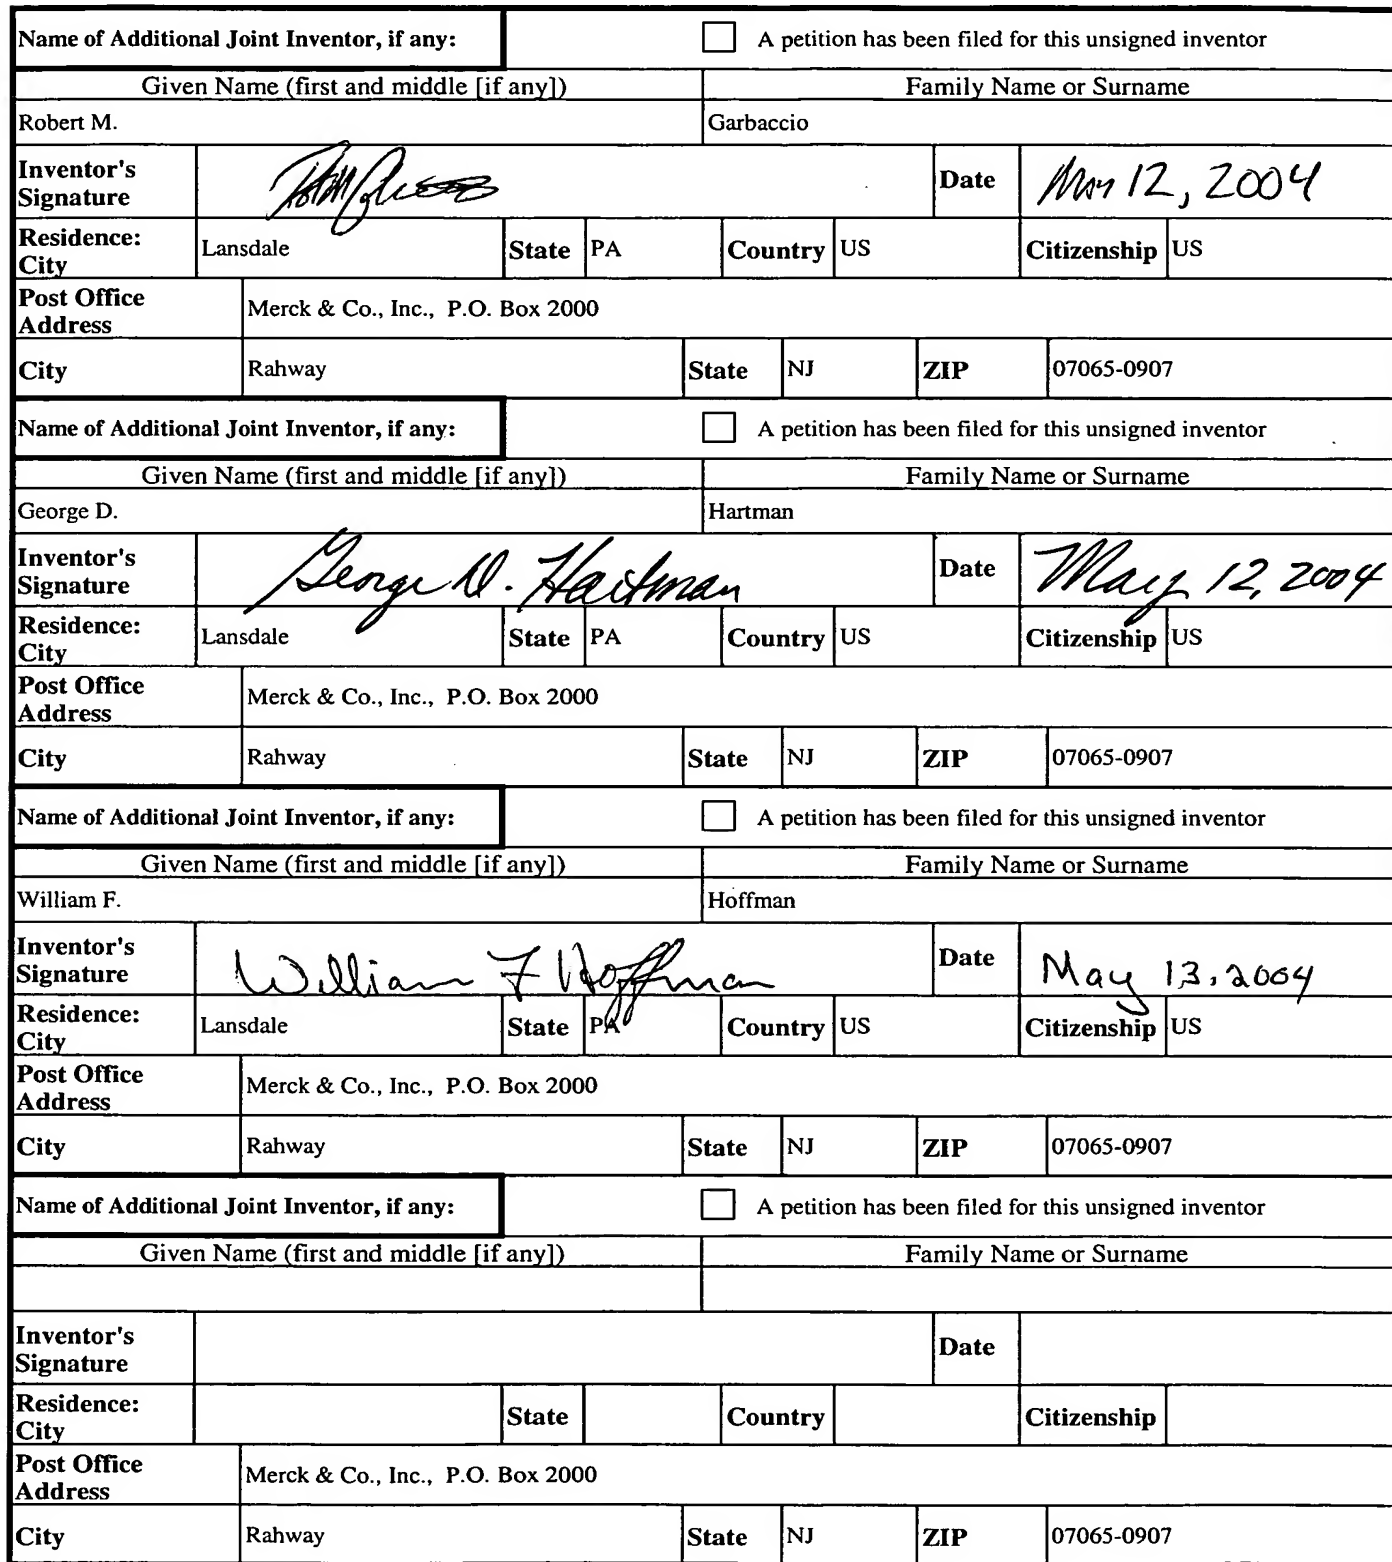 Name of Additional Joint Inventor, if any: A petition has been filed for this unsigned inventor
Given Name (first and middle [if any]) Family Name or Surname
Robert M. Garbaccio
Inventor's Signature Date May 12, 2004
Residence: City Lansdale State PA Country US Citizenship US
Post Office Address Merck & Co., Inc., P.O. Box 2000
City Rahway State NJ ZIP 07065-0907
Name of Additional Joint Inventor, if any: A petition has been filed for this unsigned inventor
Given Name (first and middle [if any]) Family Name or Surname
George D. Hartman
Inventor's Signature George D. Hartman Date May 12, 2004
Residence: City Lansdale State PA Country US Citizenship US
Post Office Address Merck & Co., Inc., P.O. Box 2000
City Rahway State NJ ZIP 07065-0907
Name of Additional Joint Inventor, if any: A petition has been filed for this unsigned inventor
Given Name (first and middle [if any]) Family Name or Surname
William F. Hoffman
Inventor's Signature William F Hoffman Date May 13, 2004
Residence: City Lansdale State PA Country US Citizenship US
Post Office Address Merck & Co., Inc., P.O. Box 2000
City Rahway State NJ ZIP 07065-0907
Name of Additional Joint Inventor, if any: A petition has been filed for this unsigned inventor
Given Name (first and middle [if any]) Family Name or Surname
Inventor's Signature Date
Residence: City State Country Citizenship
Post Office Address Merck & Co., Inc., P.O. Box 2000
City Rahway State NJ ZIP 07065-0907